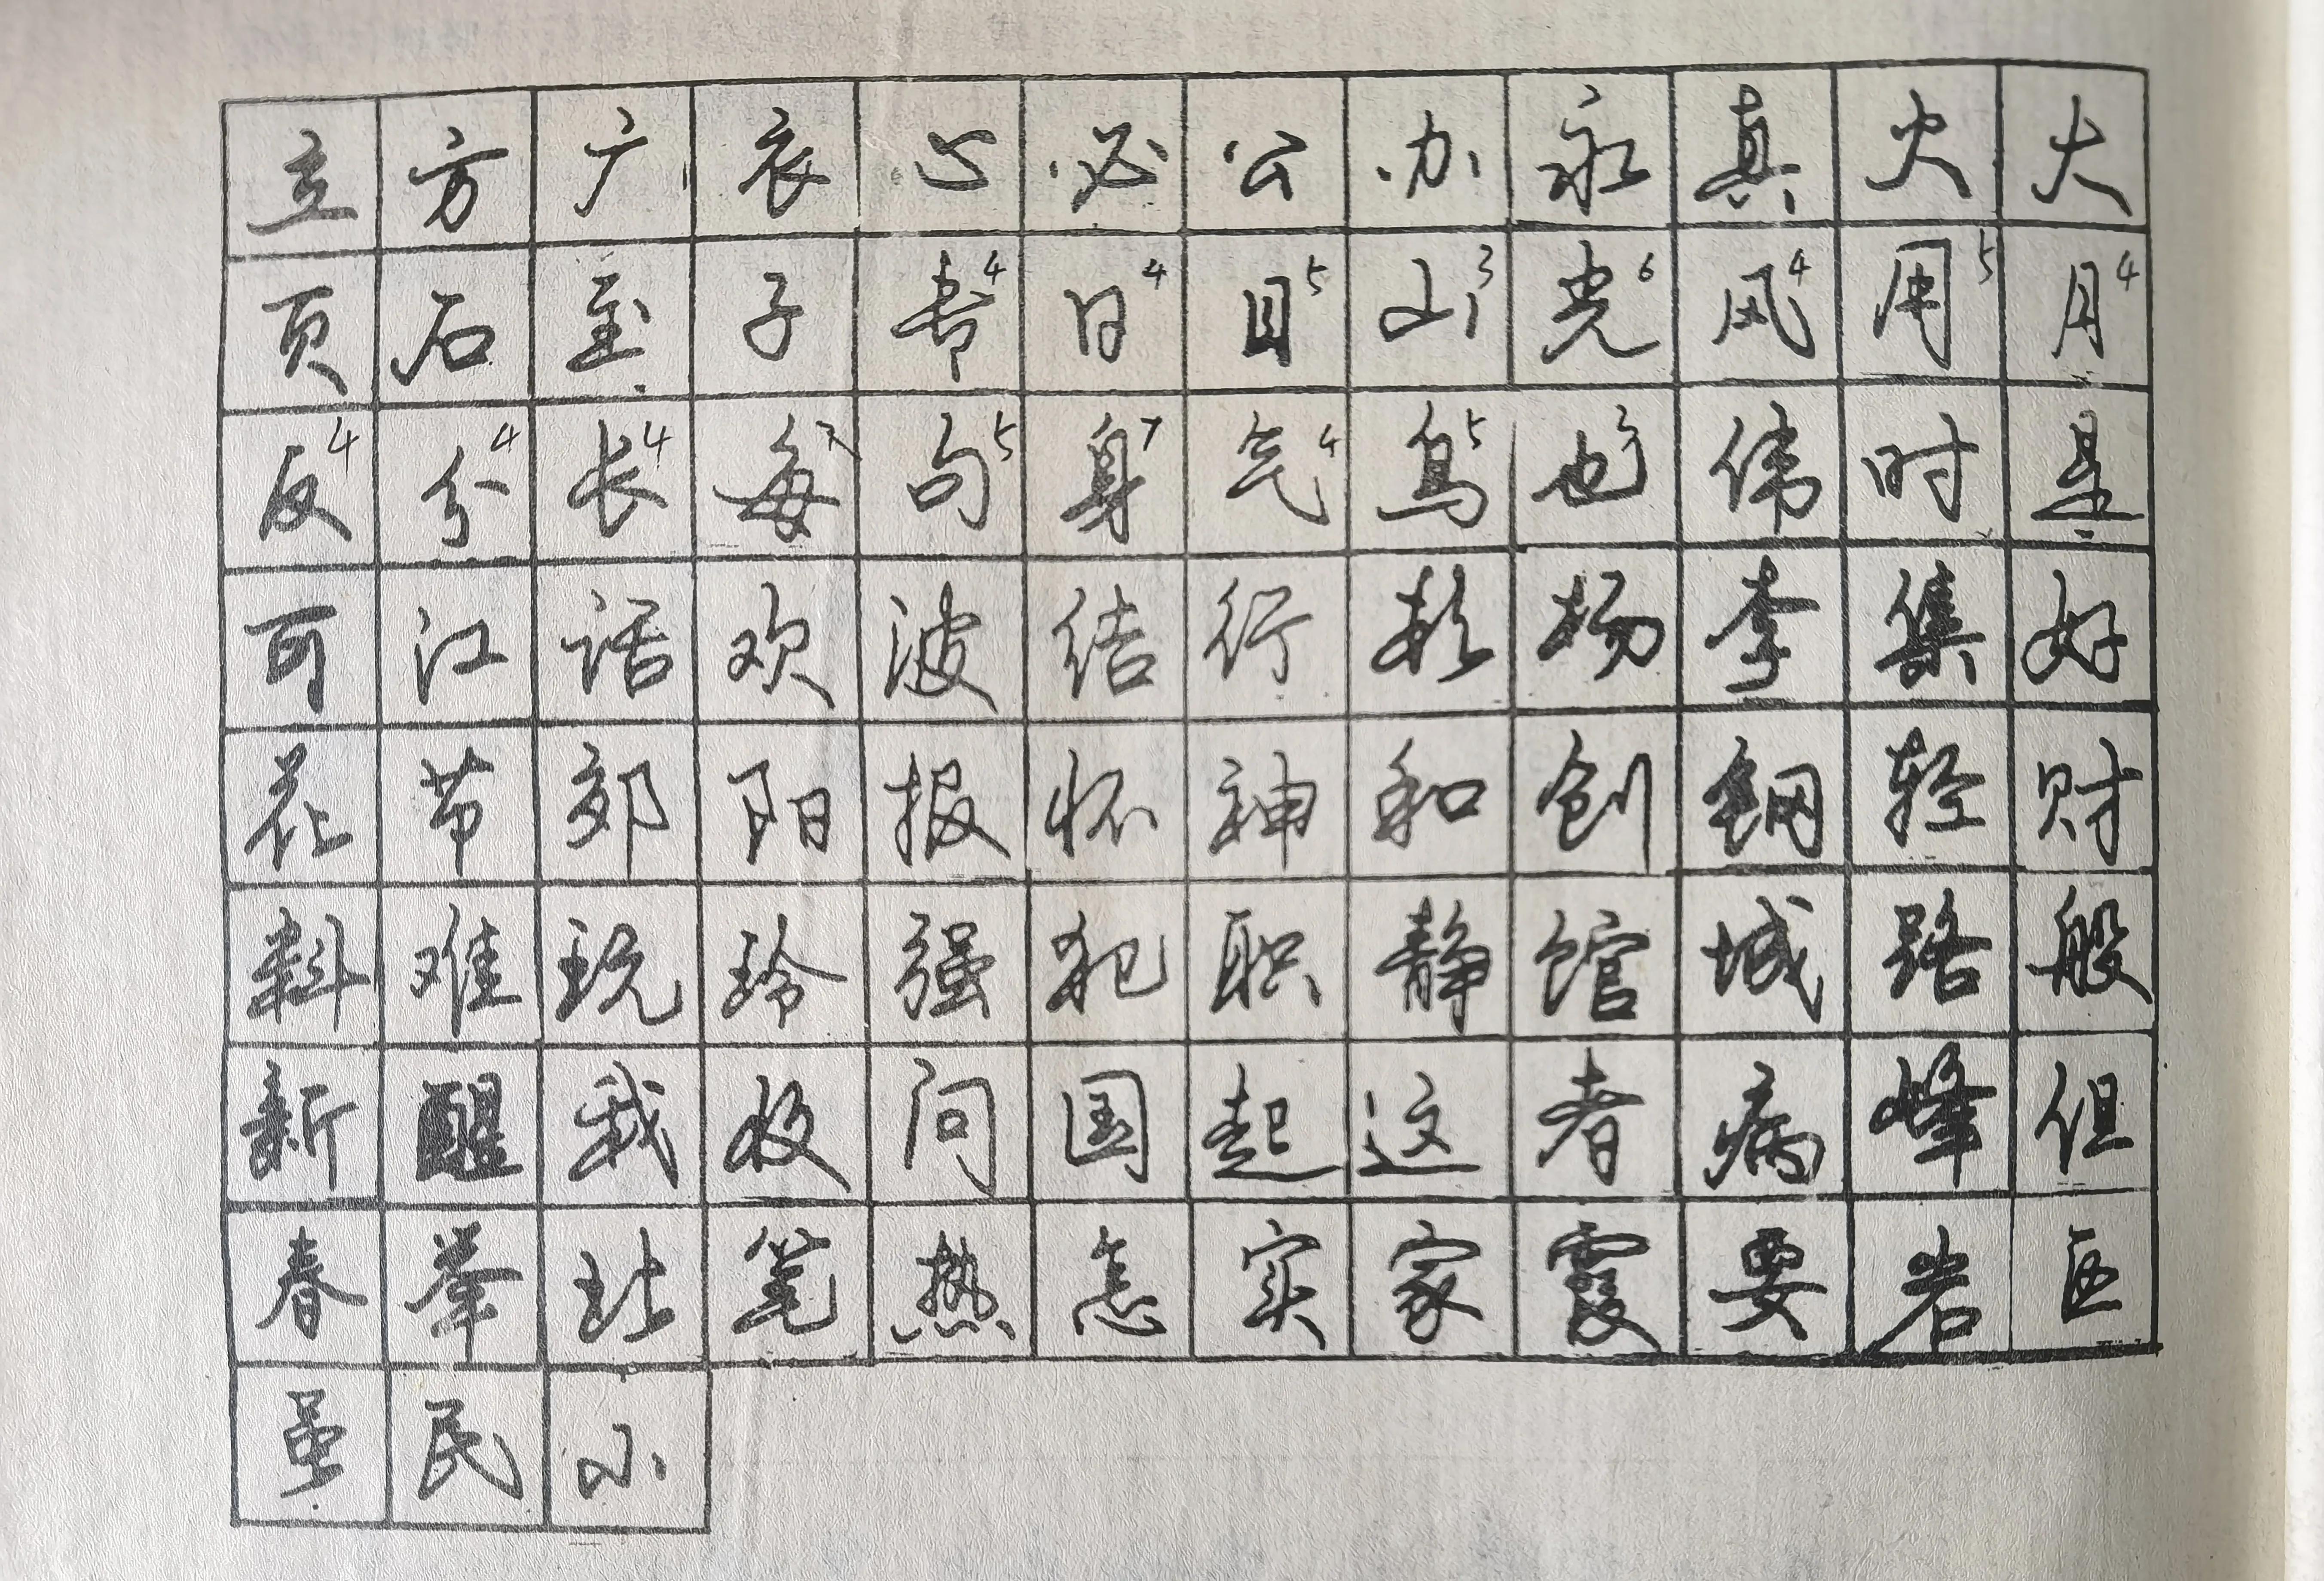 立 方 广 衣 心 必 公 办 永 真 火 大
页 石 至 子 4 日4 目5 山3 光6 风4 用5 月4
反4 分4 长4 每7 句5 身7 气4 鸟5 也3 伟 时 是
可 江 话 欢 波 结 行 杨 李 集 好
花 节 郊 阳 报 怀 神 和 创 钢 轻 财
料 难 玩 玲 强 犯 职 静 馆 城 路 般
新 醒 我 收 问 国 起 这 者 病 峰 但
春 举 笔 热 怎 实 家 霞 要 岩 区
虽 民 小